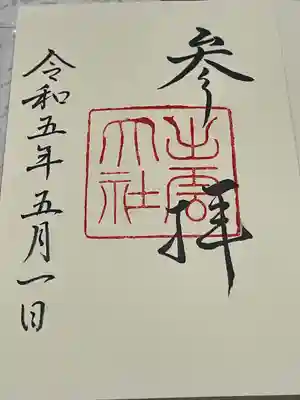 参拝
出雲
大社
令和五年五月一日